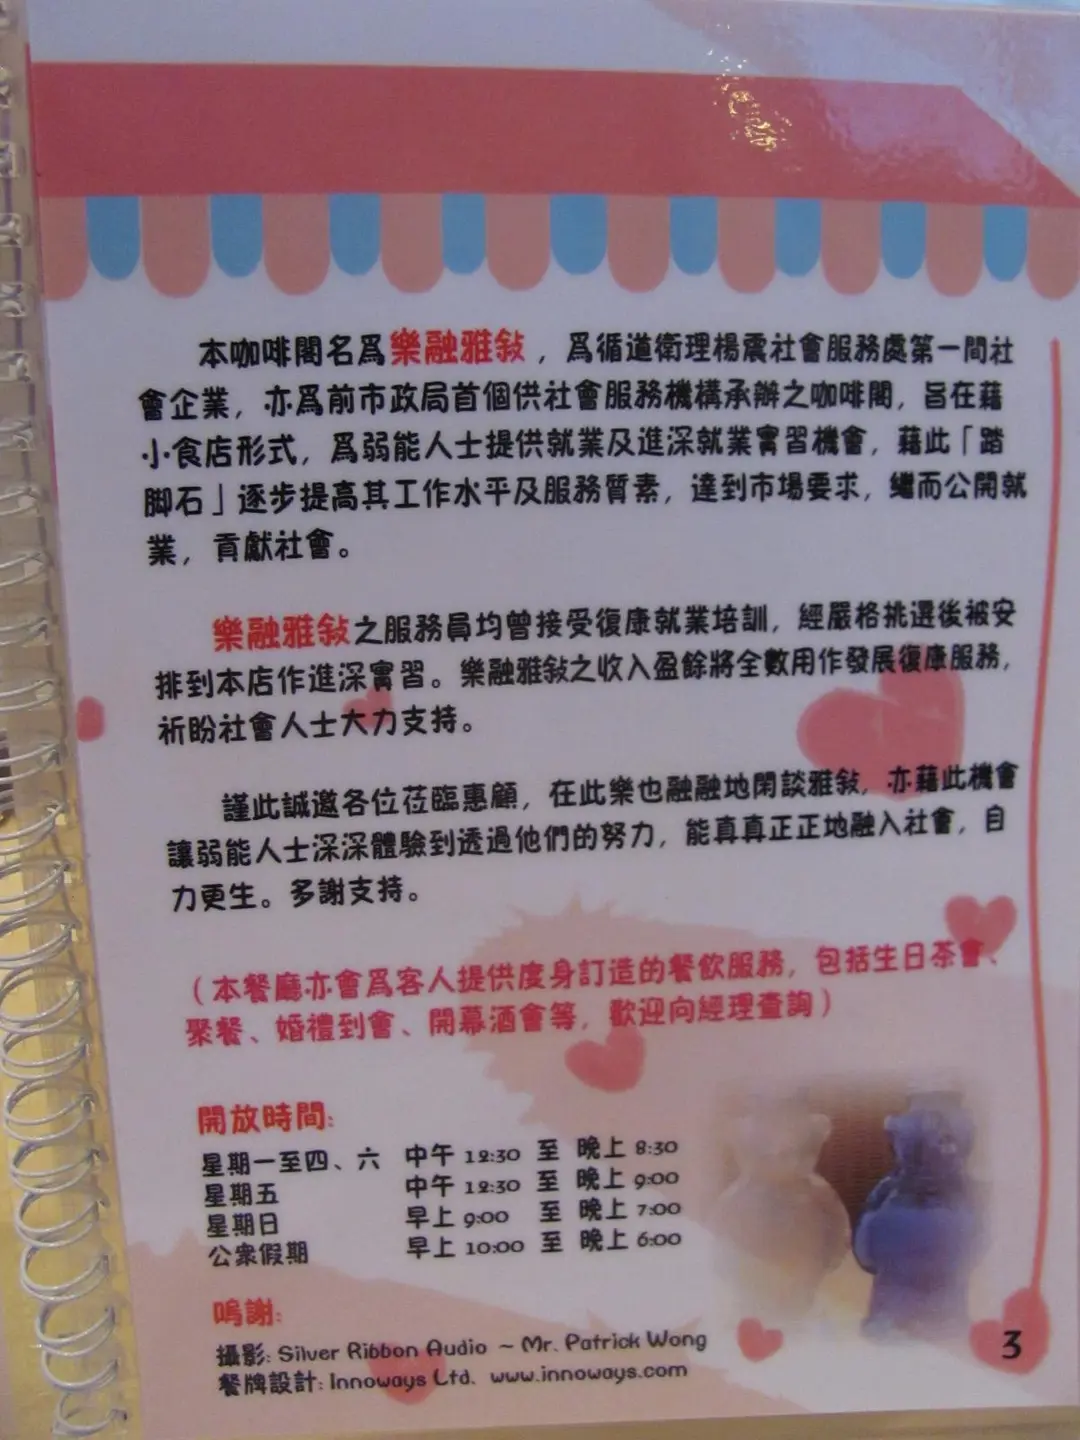 本咖啡閣名爲樂融雅敍，爲循道衛理楊震社會服務處第一間社
會企業，亦爲前市政局首個供社會服務機構承辦之咖啡閣，旨在藉
小食店形式，爲弱能人士提供就業及進深就業實習機會，藉此「踏
脚石」逐步提高其工作水平及服務質素，達到市場要求，繼而公開就
業，貢獻社會。
樂融雅敍之服務員均曾接受復康就業培訓，經嚴格挑選後被安
排到本店作進深實習。樂融雅敍之收入盈餘將全數用作發展復康服務，
祈盼社會人士大力支持。
謹此誠邀各位莅臨惠顧，在此樂也融融地閑談雅敍，亦藉此機會
讓弱能人士深深體驗到透過他們的努力，能真真正正地融入社會，自
力更生。多謝支持。
（本餐廳亦會爲客人提供度身訂造的餐飲服務，包括生日茶會、
聚餐、婚禮到會、開幕酒會等，歡迎向經理查詢）
開放時間:
星期一至四、六 中午 12:30 至 晚上 8:30
星期五 中午 12:30 至 晚上 9:00
星期日 早上 9:00 至 晚上 7:00
公衆假期 早上 10:00 至 晚上 6:00
嗚謝:
攝影: Silver Ribbon Audio ~ Mr. Patrick Wong
餐牌設計: Innoways Ltd. www.innoways.com
3